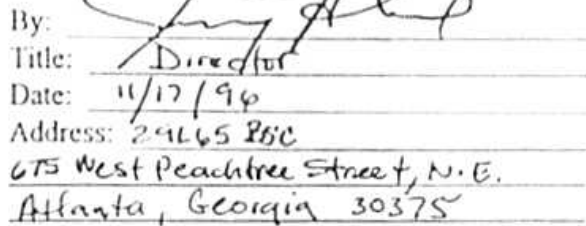 By:
Title: Director
Date: 11/17/96
Address: 29L65 BSC
675 West Peachtree Street, N.E.
Atlanta, Georgia 30375